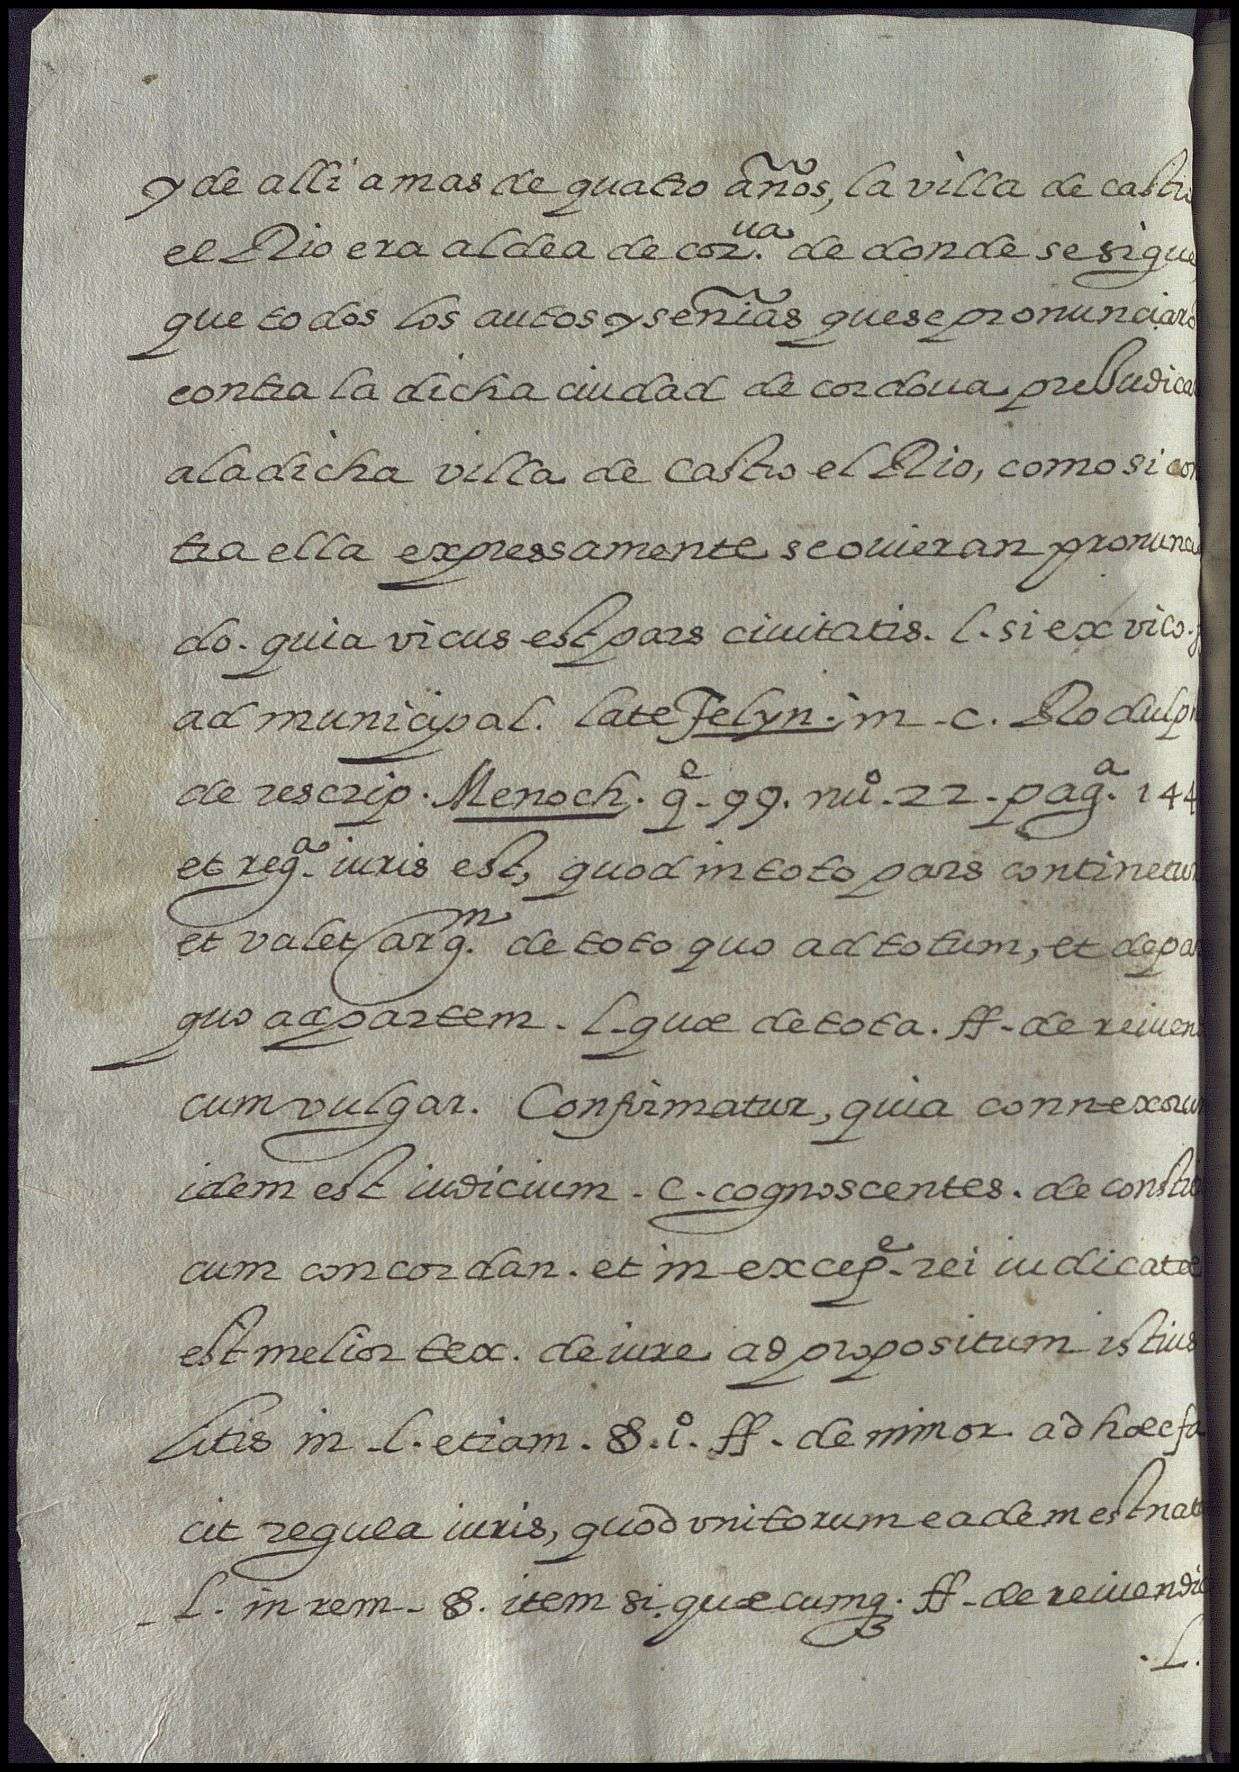 y de alli a mas de quatro años, la villa de castro
el Rio era aldea de cor.ua de donde se sigue
que todos los autos y senĩas que se pronunciarõ
contra la dicha ciudad de cordoua preIudica
a la dicha villa de Castro el Rio, como si con
tra ella expressamente se ouieran pronuncia
do. quia vicus est pars ciuitatis. l. si ex vico.
ad municipal. late Felyn. in c. Rodulph
de rescrip. Menoch. q.e 99. nuº. 22. pag.a 144
et reg.a iuris est, quod in toto pars continetur
et valet arg.m de toto quo ad totum, et de par
quo ad partem. l. quæ de tota. ff. de rei uen
cum vulgar. Confirmatur, quia connexorum
idem est iudicium. c. cognoscentes. de constit
cum concordan. et in excep.e rei iudicatæ
est melior tex. de iure ad propositum istius
litis in l. etiam. §. iº. ff. de minor. ad hæc fa
cit regula iuris, quod vnitorum eadem est nat
l. in rem. §. item si quæcumq. ff. de rei uendic
.L.